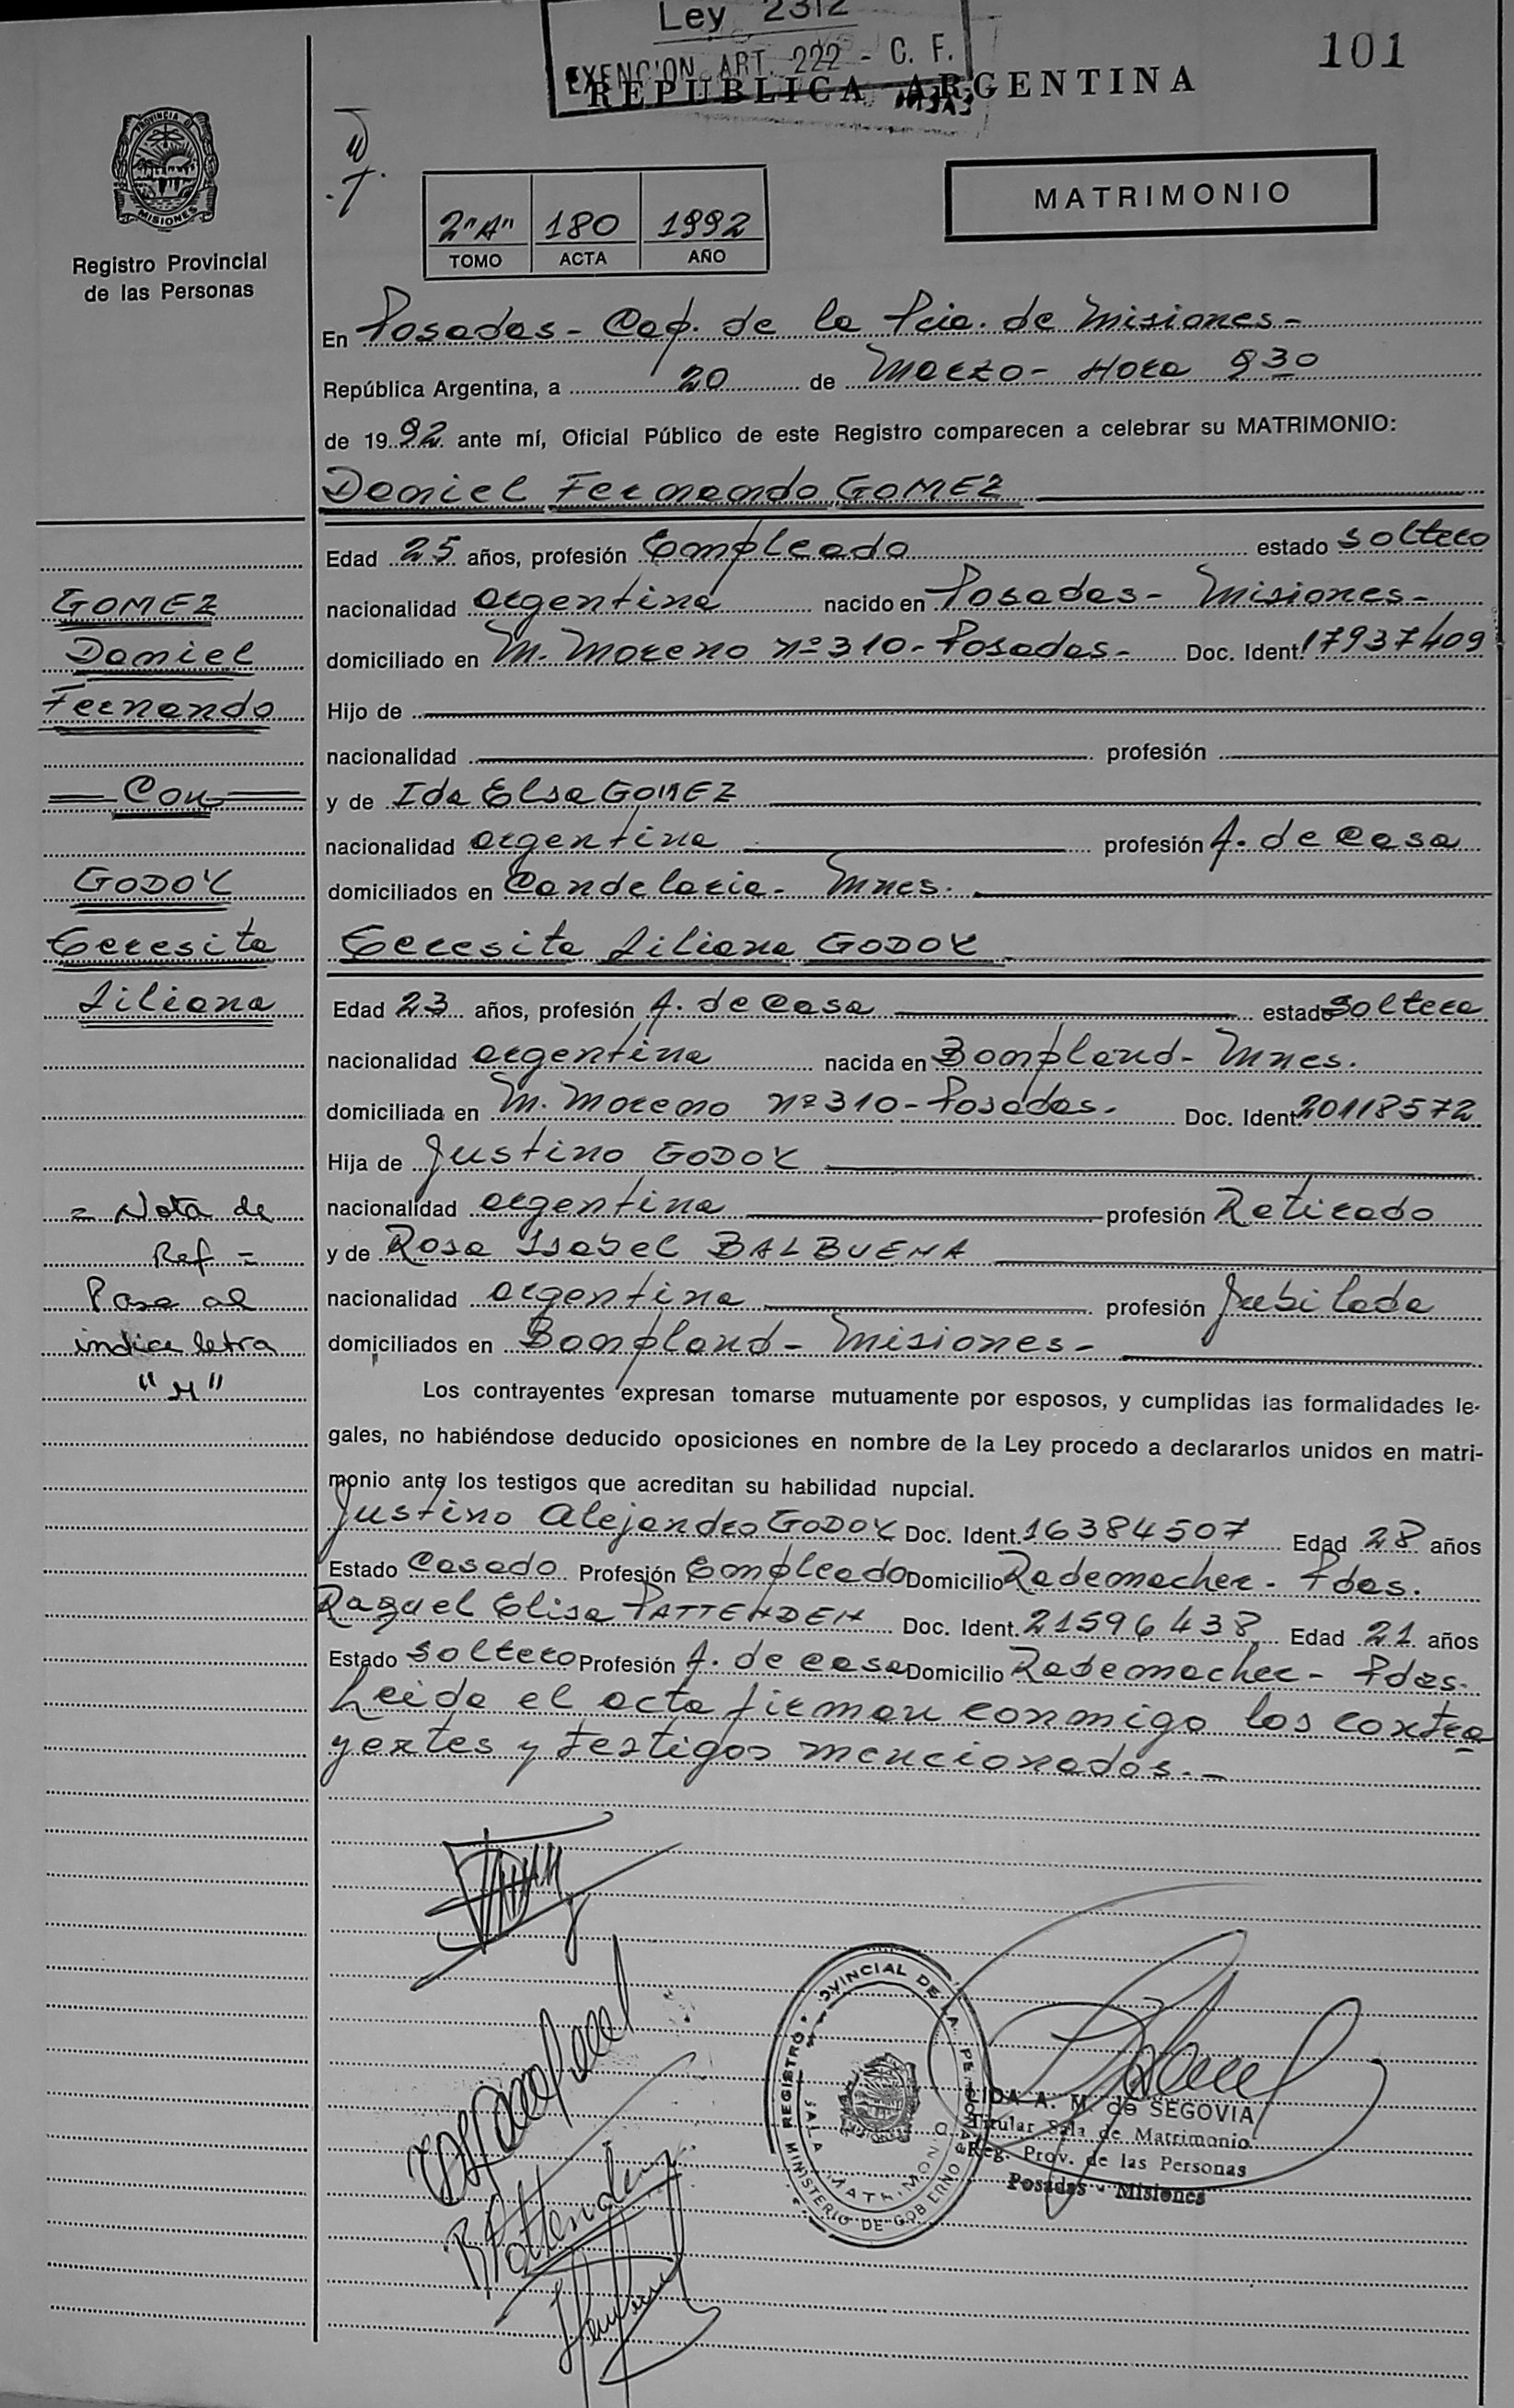 Ley 2312
EXENCION ART. 222 - C. F.
REPUBLICA ARGENTINA
101
PROVINCIA DE
MISIONES
Registro Provincial
de las Personas
MATRIMONIO
2"A" 180 1992
TOMO ACTA AÑO
En Posadas - Cap. de la Pcia. de Misiones -
República Argentina, a 20 de Marzo - Hora 930
de 1992 ante mí, Oficial Público de este Registro comparecen a celebrar su MATRIMONIO:
Daniel Fernando GOMEZ
Edad 25 años, profesión Empleado estado soltero
nacionalidad argentina nacido en Posadas - Misiones -
domiciliado en M. Moreno nº 310 - Posadas - Doc. Ident. 17937409
Hijo de
nacionalidad profesión
y de Ida Elsa GOMEZ
nacionalidad argentina profesión A. de Casa
domiciliados en Candelaria - Mnes.
Teresita Liliana GODOY
Edad 23 años, profesión A. de Casa estado soltera
nacionalidad argentina nacida en Bompland - Mnes.
domiciliada en M. Moreno nº 310 - Posadas - Doc. Ident. 20118572
Hija de Justino GODOY
nacionalidad argentina profesión Retirado
y de Rosa Isabel BALBUENA
nacionalidad argentina profesión Jubilada
domiciliados en Bompland - Misiones -
Los contrayentes expresan tomarse mutuamente por esposos, y cumplidas las formalidades le-
gales, no habiéndose deducido oposiciones en nombre de la Ley procedo a declararlos unidos en matri-
monio ante los testigos que acreditan su habilidad nupcial.
Justino Alejandro GODOY Doc. Ident. 16384507 Edad 28 años
Estado Casado Profesión Empleado Domicilio Rademacher - Pdas.
Raquel Elisa PATTENDEN Doc. Ident. 21596438 Edad 21 años
Estado soltero Profesión A. de casa Domicilio Rademacher - Pdas.
Leida el acta firman conmigo los contra
yentes y testigos mencionados. -
GOMEZ
Daniel
Fernando
= Con =
GODOY
Teresita
Liliana
= Nota de
Ref =
Pase al
indice letra
"M"
RPattenden
REGISTRO PROVINCIAL DE LA PERSONAS
MINISTERIO DE GOBIERNO
SALA MATRIMONIO
MISIONES
IDA A. M. de SEGOVIA
Titular Sala de Matrimonio
Reg. Prov. de las Personas
Posadas - Misiones